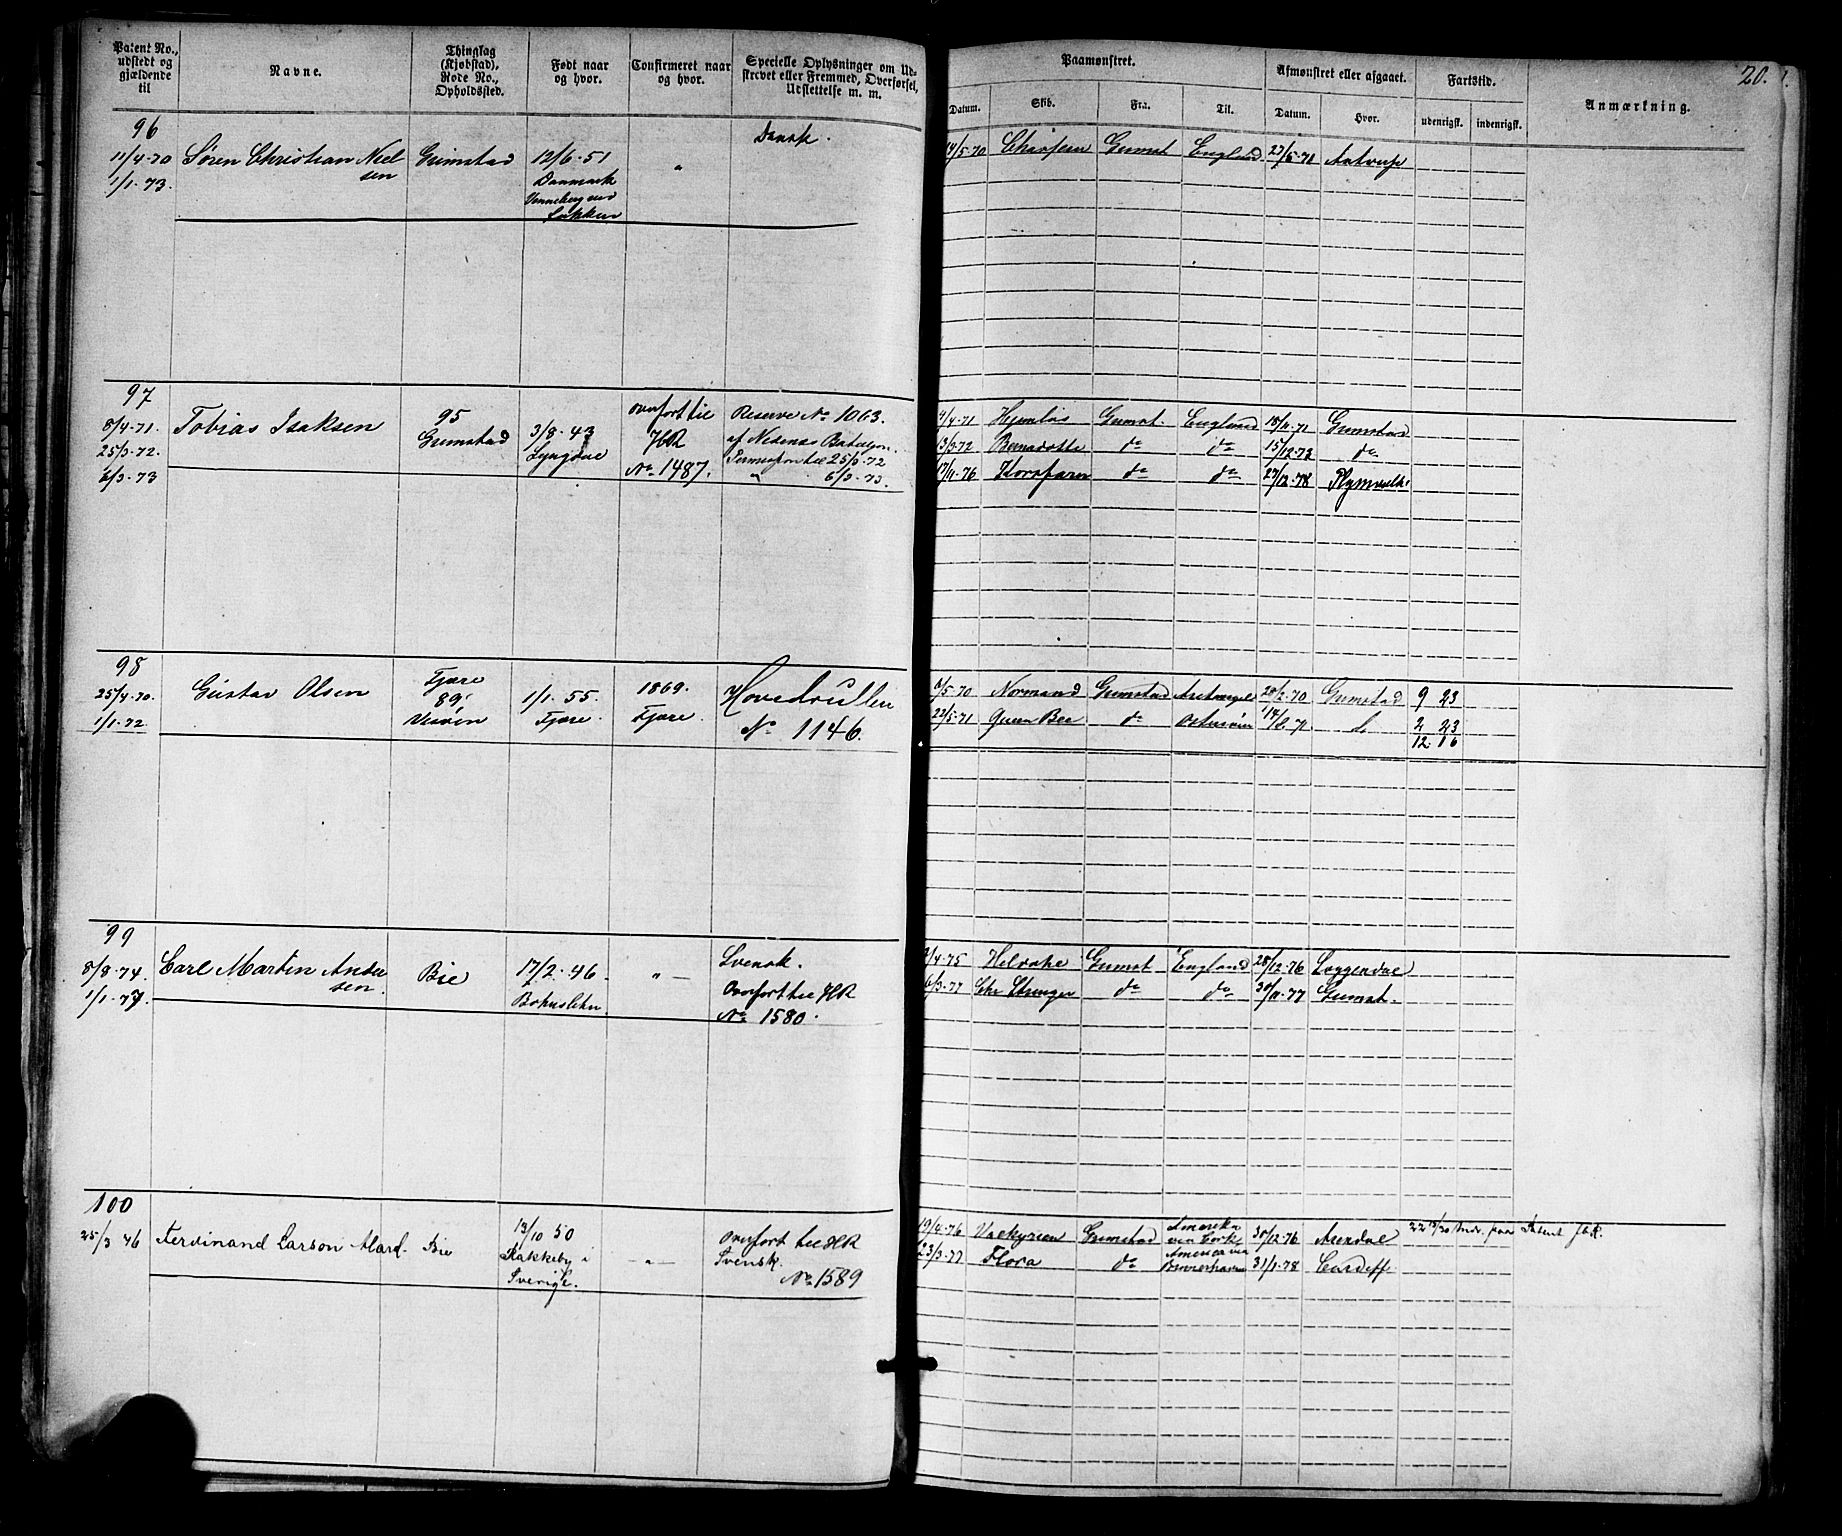 20.
Patent No., udstedt og gjældende til
Navne.
Thinglag (Kjøbstad), Rode No., Opholdssted.
Født naar og hvor.
Confirmeret naar og hvor.
Specielle Oplysninger om Udskrevet eller Fremmed, Overførsel, Udslettelse m. m.
Paamønstret.
Datum.
Skib.
Fra.
Til.
Afmønstret eller afgaaet.
Datum.
Hvor.
Fartstid.
udenrigsk.
indenrigsk.
Anmærkning.
96
11/4-70
1/1-73.
Søren Christian Niel
sen
Grimstad
12/6-51
Danmark
"
Dansk.
14/5-70 Grimst England 23/5-71
97
8/4-71.
25/3-72.
6/3-73
Tobias Isaksen
95
Grimstad
3/8-43
Lyngdal
overfört til
HR
No 1487.
Reserve No 1063.
af Nedenæs Bataljon.
Permission til 25/3-72
" 6/3-73.
4/4-71 Grimst. England 18/11-71 Grimstad
13/3-72 Bernadotte do do 15/12-72 do
17/11-76 do do 27/12-78
98
25/4-70.
1/1-72.
Gustav Olsen
Fjære
89
1/1-55
Fjære.
1869.
Fjære.
Hovedrullen
No 1146.
6/5-70 Normand Grimstad Grimstad 9 23
22/5-71 Queen Bee do 2 23
12 16
99
8/8-74.
1/1-77.
Carl Martin Ander
sen.
Bie
17/2-46
Bohuslehn.
" —
Svensk.
Overfört til HR
No 1580.
2/4-75 Grimst England 28/12-76
6/3-77 do do 30/11-77 Grimst.
100
25/3 76
Ferdinand Larson Alard.
Bie
13/10 50
i
Sverige.
— " —
overfört til HR
Svensk.
No 1589
19/4-76 Valkyrien Grimstad Amerika
via Cork 30/12-76 Arendal
23/3-77 Flora do America via
Bremerhaven 31/1-78 Cardiff